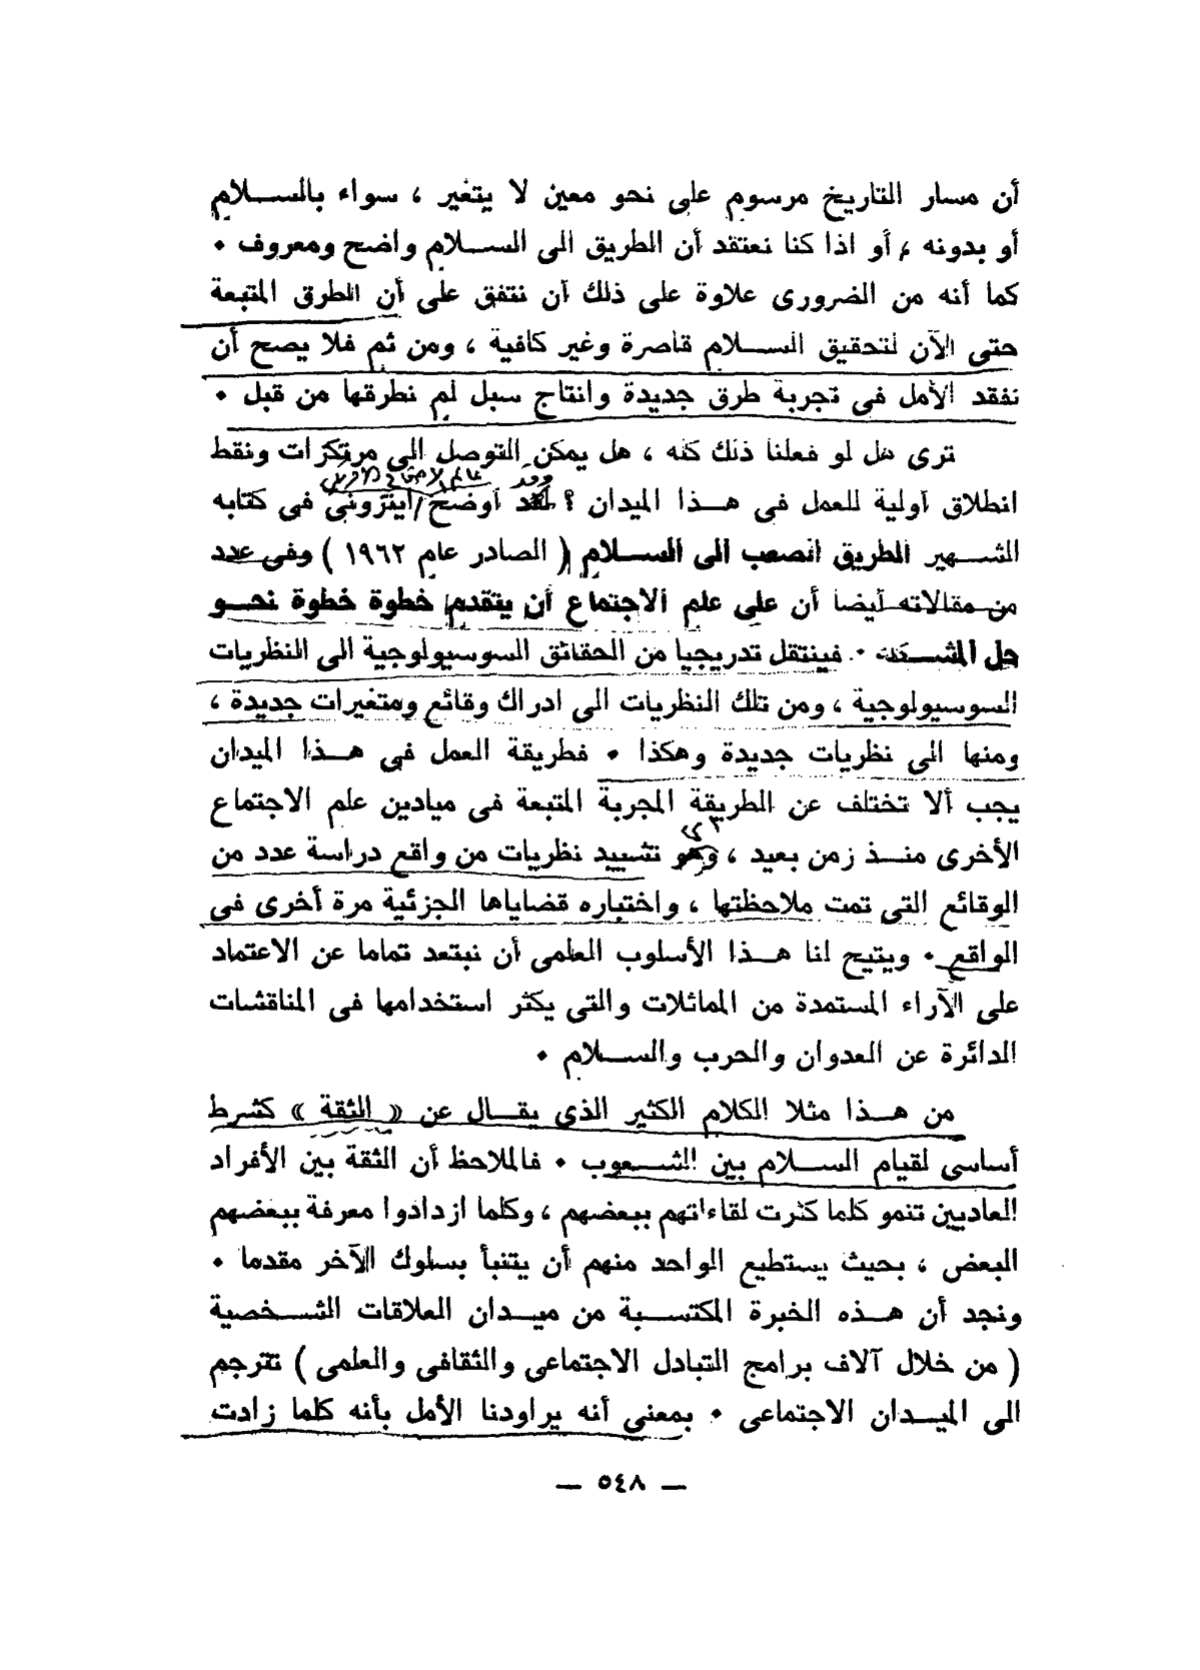 أن مسار التاريخ مرسوم على نحو معين لا يتغير ، سواء بالسلام
أو بدونه ، أو اذا كنا نعتقد أن الطريق الى السلام واضح ومعروف .
كما أنه من الضرورى علاوة على ذلك أن نتفق على أن الطرق المتبعة
حتى الآن لتحقيق السلام قاصرة وغير كافية ، ومن ثم فلا يصح أن
نفقد الأمل فى تجربة طرق جديدة وانتاج سبل لم نطرقها من قبل .
ترى هل لو فعلنا ذلك كله ، هل يمكن التوصل الى مرتكزات ونقط
وقد عالم الاجتماع الأمريكى
انطلاق أولية للعمل فى هذا الميدان ؟ لقد أوضح / ايتزونى فى كتابه
الشهير الطريق الصعب الى السلام ( الصادر عام ١٩٦٢ ) وفى عدد
من مقالاته أيضا أن على علم الاجتماع أن يتقدم خطوة خطوة نحو
حل المشكلة . فينتقل تدريجيا من الحقائق السوسيولوجية الى النظريات
السوسيولوجية ، ومن تلك النظريات الى ادراك وقائع ومتغيرات جديدة ،
ومنها الى نظريات جديدة وهكذا . فطريقة العمل فى هذا الميدان
يجب ألا تختلف عن الطريقة المجربة المتبعة فى ميادين علم الاجتماع
الأخرى منذ زمن بعيد ، وهو تشييد نظريات من واقع دراسة عدد من
الوقائع التى تمت ملاحظتها ، واختباره قضاياها الجزئية مرة أخرى فى
الواقع . ويتيح لنا هذا الأسلوب العلمى أن نبتعد تماما عن الاعتماد
على الآراء المستمدة من المماثلات والتى يكثر استخدامها فى المناقشات
الدائرة عن العدوان والحرب والسلام .
من هذا مثلا الكلام الكثير الذى يقال عن « الثقة » كشرط
أساسى لقيام السلام بين الشعوب . فالملاحظ أن الثقة بين الأفراد
العاديين تنمو كلما كثرت لقاءاتهم ببعضهم ، وكلما ازدادوا معرفة ببعضهم
البعض ، بحيث يستطيع الواحد منهم أن يتنبأ بسلوك الآخر مقدما .
ونجد أن هذه الخبرة المكتسبة من ميدان العلاقات الشخصية
( من خلال آلاف برامج التبادل الاجتماعى والثقافى والعلمى ) تترجم
الى الميدان الاجتماعى . بمعنى أنه يراودنا الأمل بأنه كلما زادت
— ٥٤٨ —